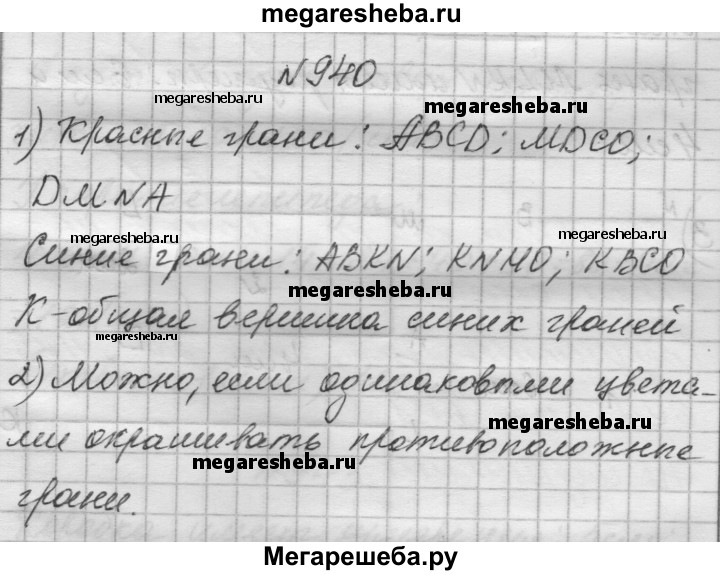 megaresheba.ru
№940
megaresheba.ru
megaresheba.ru
1) Красные грани: ABCD; MDCO;
DMNA
megaresheba.ru
megaresheba.ru
Синие грани: ABKN; KNMO; KBCO
megaresheba.ru
К-общая вершина синих граней
megaresheba.ru
2) Можно, если одинаковыми цвета-
megaresheba.ru
ми окрашивать противоположные
megaresheba.ru
грани.
Мегарешеба.ру